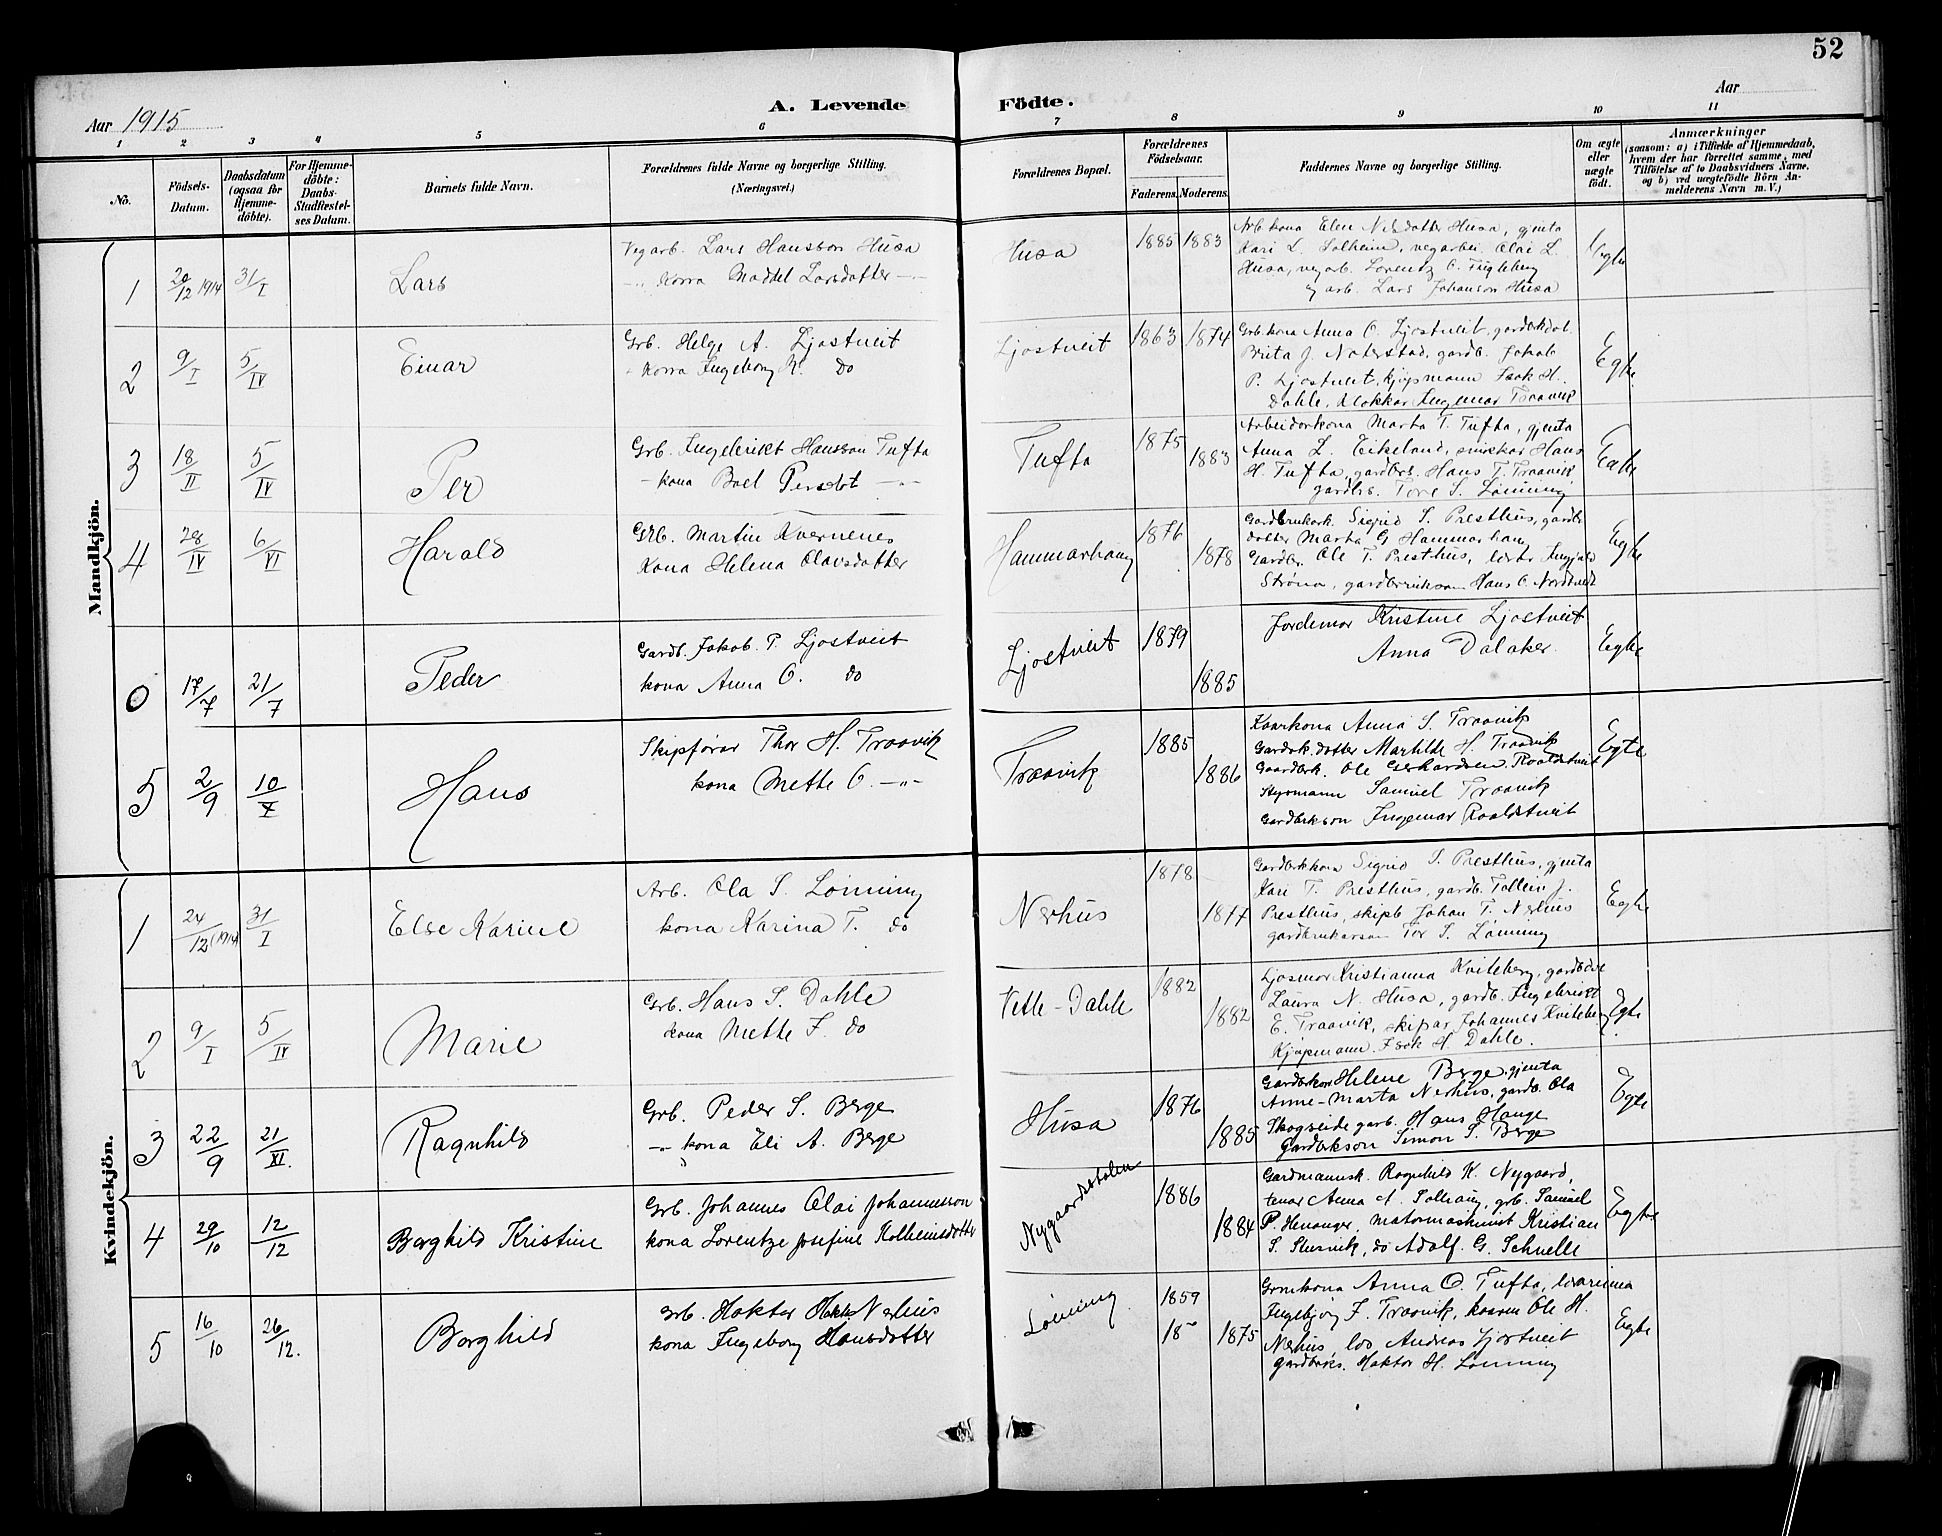 52
Aar 1915
A. Levende Födte.
Aar
1 2 3 4 5 6 7 8 9 10 11
No.
Födsels-Datum.
Daabsdatum (ogsaa for Hjemme-döbte).
For Hjemme-döbte: Daabs-Stadfæstel-ses Datum.
Barnets fulde Navn.
Forældrenes fulde Navne og borgerlige Stilling. (Næringsvei.)
Forældrenes Bopæl.
Forældrenes Födselsaar.
Faderens. Moderens.
Faddernes Navne og borgerlige Stilling.
Om ægte eller uægte födt.
Anmærkninger
(saasom: a) i Tilfælde af Hjemmedaab, hvem der har forrettet samme, med Tilföielse af to Daabsvidners Navne, og b) ved uægtefödte Börn An-melderens Navn m. V.)
Mandkjön.
1 20/12 1914 31/I Lars
Vegarb. Lars Hansson Husa
Kona Maddel Larsdotter
Husa 1885 1883
Arb. kona Elen Nilsdotter Husa, gjenta
Kari L. Solheim, vegarbei. Olai L.
Husa, vegarb. Lorentz O. Fugleberg
og arb. Lars Johanson Husa
Egte
2 9/I 5/IV Einar
Grb. Helge A. Ljostveit
Kona Ingeborg K. do
Ljostveit 1863 1874
Grb. kona Anna O. Ljostveit, gardbr.dot.
Brita J. Naterstad, gardb. Jakob
P. Ljostveit, kjøpmann Isak H.
Dahle, klokkar Ingemar Traavik
Egte
3 18/II 5/IV Per
Grb. Ingebrikt Hansson Tufta
kona Boel Persdot
Tufta 1875 1883
Arbeidarkona Marta T. Tufta, gjenta
Anna L. Eikeland, snikkar Hans
H. Tufta, gardbrs. Hans T. Traavik
gardbrs. Tore S. Lønning
Egte
4 28/IV 6/VI Harald
Grb. Martin Kvernenes
Kona Helena Olavsdotter
Hammarhaug 1876 1878
Gardbrukark. Sigrid S. Presthus, gardbr
dotter Marta G Hammarhaug
Gardbr. Ole T. Presthus, lærar Ingjald
Strøno, gardbrukson Hans O. Nordtveit
Egte
0 17/7 21/7 Peder
Gardb. Jakob P. Ljostveit
kona Anna O. do
Ljostveit 1879 1885
Jordemor Kristine Ljostveit
Anna Dalaker
Egte
5 2/9 10/X Hans
Skipförar Thor H. Traavik
kona Mette O. -"-
Traavik 1885 1886
Kaarkona Anna S. Traavik
Gardbrk.dotter Mathilde H. Traavik
Gaardbrk. Ole Gerhardsen Roaldstveit
Styrmann Samuel Traavik
Gardbrkson Ingemar Roaldstveit
Egte
Kvindekjön.
1 24/12 (1914) 31/I Else Karine
Arb. Ola S. Lønning
kona Karina T. do
Nerhus 1878 1877
Gardbrkkona Sigrid S. Presthus, gjenta
Kari T. Presthus, gardb. Tollein J.
Presthus, skipb. Johan T. Nerhus
gardbrukarson Tor S. Lønning
Egte
2 9/I 5/IV Marie
Grb. Hans S. Dahle
kona Mette J. do
Vetle-Dahle 1882 1882
Ljosmor Kristianna Kviteberg, gardbdot
Laura N. Husa, gardb. Ingebrikt
E. Traavik, skipar Johannes Kviteberg
Kjøpmann Isak H. Dahle.
Egte
3 22/9 21/XI. Ragnhild
Grb. Peder S. Berge
-"- kona Eli A. Berge
Husa 1876 1885
Gardbrkone Helene Berge, gjenta
Anne-Marta Nerhus, gardb. Ola
Skogseide garb. Hans Hauge
Gardbrkson Simon S. Berge
Egte
4 29/10 12/12 Borghild Kristine
Grb. Johannes Olai Johannesson
kona Lorentze Josefine Kolbeinsdotter
Nygaardsstølen 1886 1884
Gardmannsk. Ragnhild K. Nygaard,
tenar Anna A. Solhaug, grb. Samuel
P. Henanger, motormaskinist Kristian
S. Skersvik, do Adolf. G. Schnelle
Egte
5 16/10 26/12. Borghild
Grb. Haktor Nerhus
kona Ingeborg Hansdotter
Lønning 1859 18 1875
Grmkona Anna O. Tufta, lærarinna
Ingebjørg J. Traavik, kaarm Ole H.
Nerhus, Andreas Ljostveit
gardbrks. Haktor H. Lønning
Egte